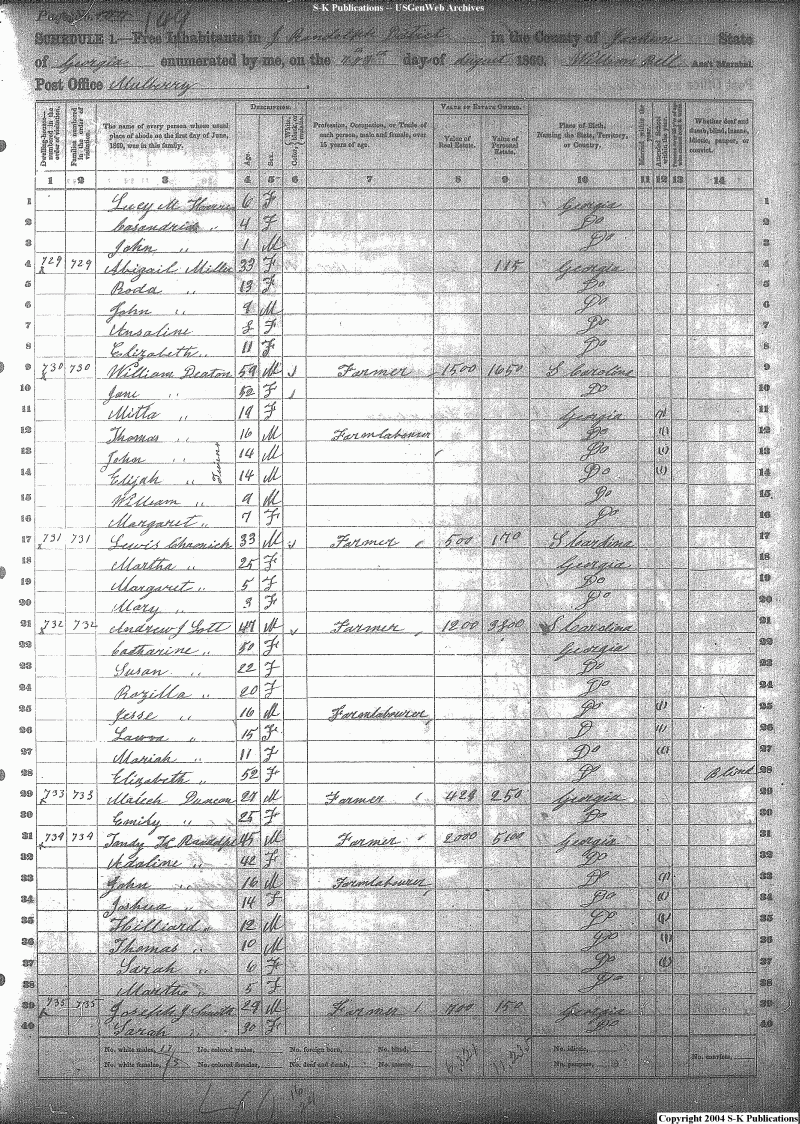 S-K Publications -- USGenWeb Archives
Page No. 169
SCHEDULE 1.—Free Inhabitants in J Randolph District in the County of Jackson State
of Georgia enumerated by me, on the day of August 1860. William Bell Ass't Marshal
Post Office Mulberry
DESCRIPTION. VALUE OF ESTATE OWNED.
Dwelling-houses—numbered in the order of visitation. Families numbered in the order of visitation. The name of every person whose usual place of abode on the first day of June, 1860, was in this family. Age. Sex. Color, Profession, Occupation, or Trade of each person, male and female, over 15 years of age. Value of Real Estate. Value of Personal Estate. Place of Birth, Naming the State, Territory, or Country. Married within the year. Attended School within the year. Whether deaf and dumb, blind, insane, idiotic, pauper, or convict.
1 2 3 4 5 6 7 8 9 10 11 12 13 14
1 Lucy M 6 F Georgia 1
2 Casandria " 4 F Do 2
3 John " 1 M Do 3
4 729 729 Abigail Miller 33 F 115 Georgia 4
5 Roda " 13 F Do 5
6 John " 9 M Do 6
7 Ansaline F Do 7
8 Elizabeth " 11 F Do 8
9 730 730 William Deaton 59 M Farmer 1500 1650 S Carolina 9
10 Jane " 52 F Do 10
11 Mitta " 19 F Georgia (1) 11
12 Thomas " 16 M Farmlabourer Do (1) 12
13 John " Twins 14 M Do (1) 13
14 Elijah " 14 M Do (1) 14
15 William " 9 M Do 15
16 Margaret " 7 F Do 16
17 731 731 Lewis Chronich 33 M Farmer 500 170 S Carolina 17
18 Martha " 25 F Georgia 18
19 Margaret " 5 F Do 19
20 Mary " 3 F Do 20
21 732 732 Andrew J Lott 47 M Farmer 1200 3800 S. Carolina 21
22 Catharine " 50 F Georgia 22
23 Susan " 22 F Do 23
24 Rozilla " 20 F Do 24
25 Jesse " 16 M Farmlabourer Do (1) 25
26 Laura " 15 F D (1) 26
27 Mariah " 11 F Do (1) 27
28 Elizabeth " 52 F D Blind 28
29 733 733 Malech Duncan 27 M Farmer 424 250 Georgia 29
30 Emily " 25 F Do 30
31 734 734 Tandy H Randolph 45 M Farmer 2000 5100 Georgia 31
32 Adaline " 42 F Do 32
33 John " 16 M Farmlabourer Do (1) 33
34 Joshua " 14 F Do (1) 34
35 Hilliard " 12 M Do (1) 35
36 Thomas " 10 M Do (1) 36
37 Sarah " 6 F Do (1) 37
38 Martha " 5 F Do 38
39 735 735 Joseph J Smith 29 M Farmer 700 150 Georgia 39
40 Sarah 30 F Do 40
No. white males, 17 No. colored males, No. foreign born, No. blind, No. idiotic, No. convicts,
No. white females, No. colored females, No. deaf and dumb, No. insane, No. paupers,
Copyright 2004 S-K Publications